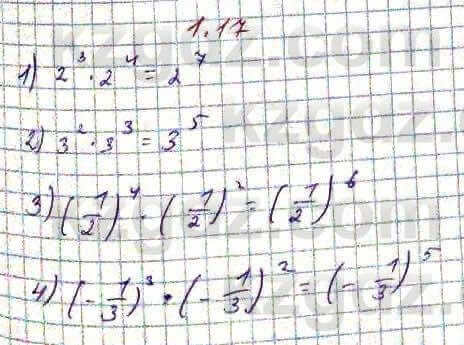 1.17
1) 2³ · 2⁴ = 2⁷
2) 3² · 3³ = 3⁵
3) (1/2)⁴ · (1/2)² = (1/2)⁶
4) (- 1/3)³ · (- 1/3)² = (- 1/3)⁵
kzgdz.com